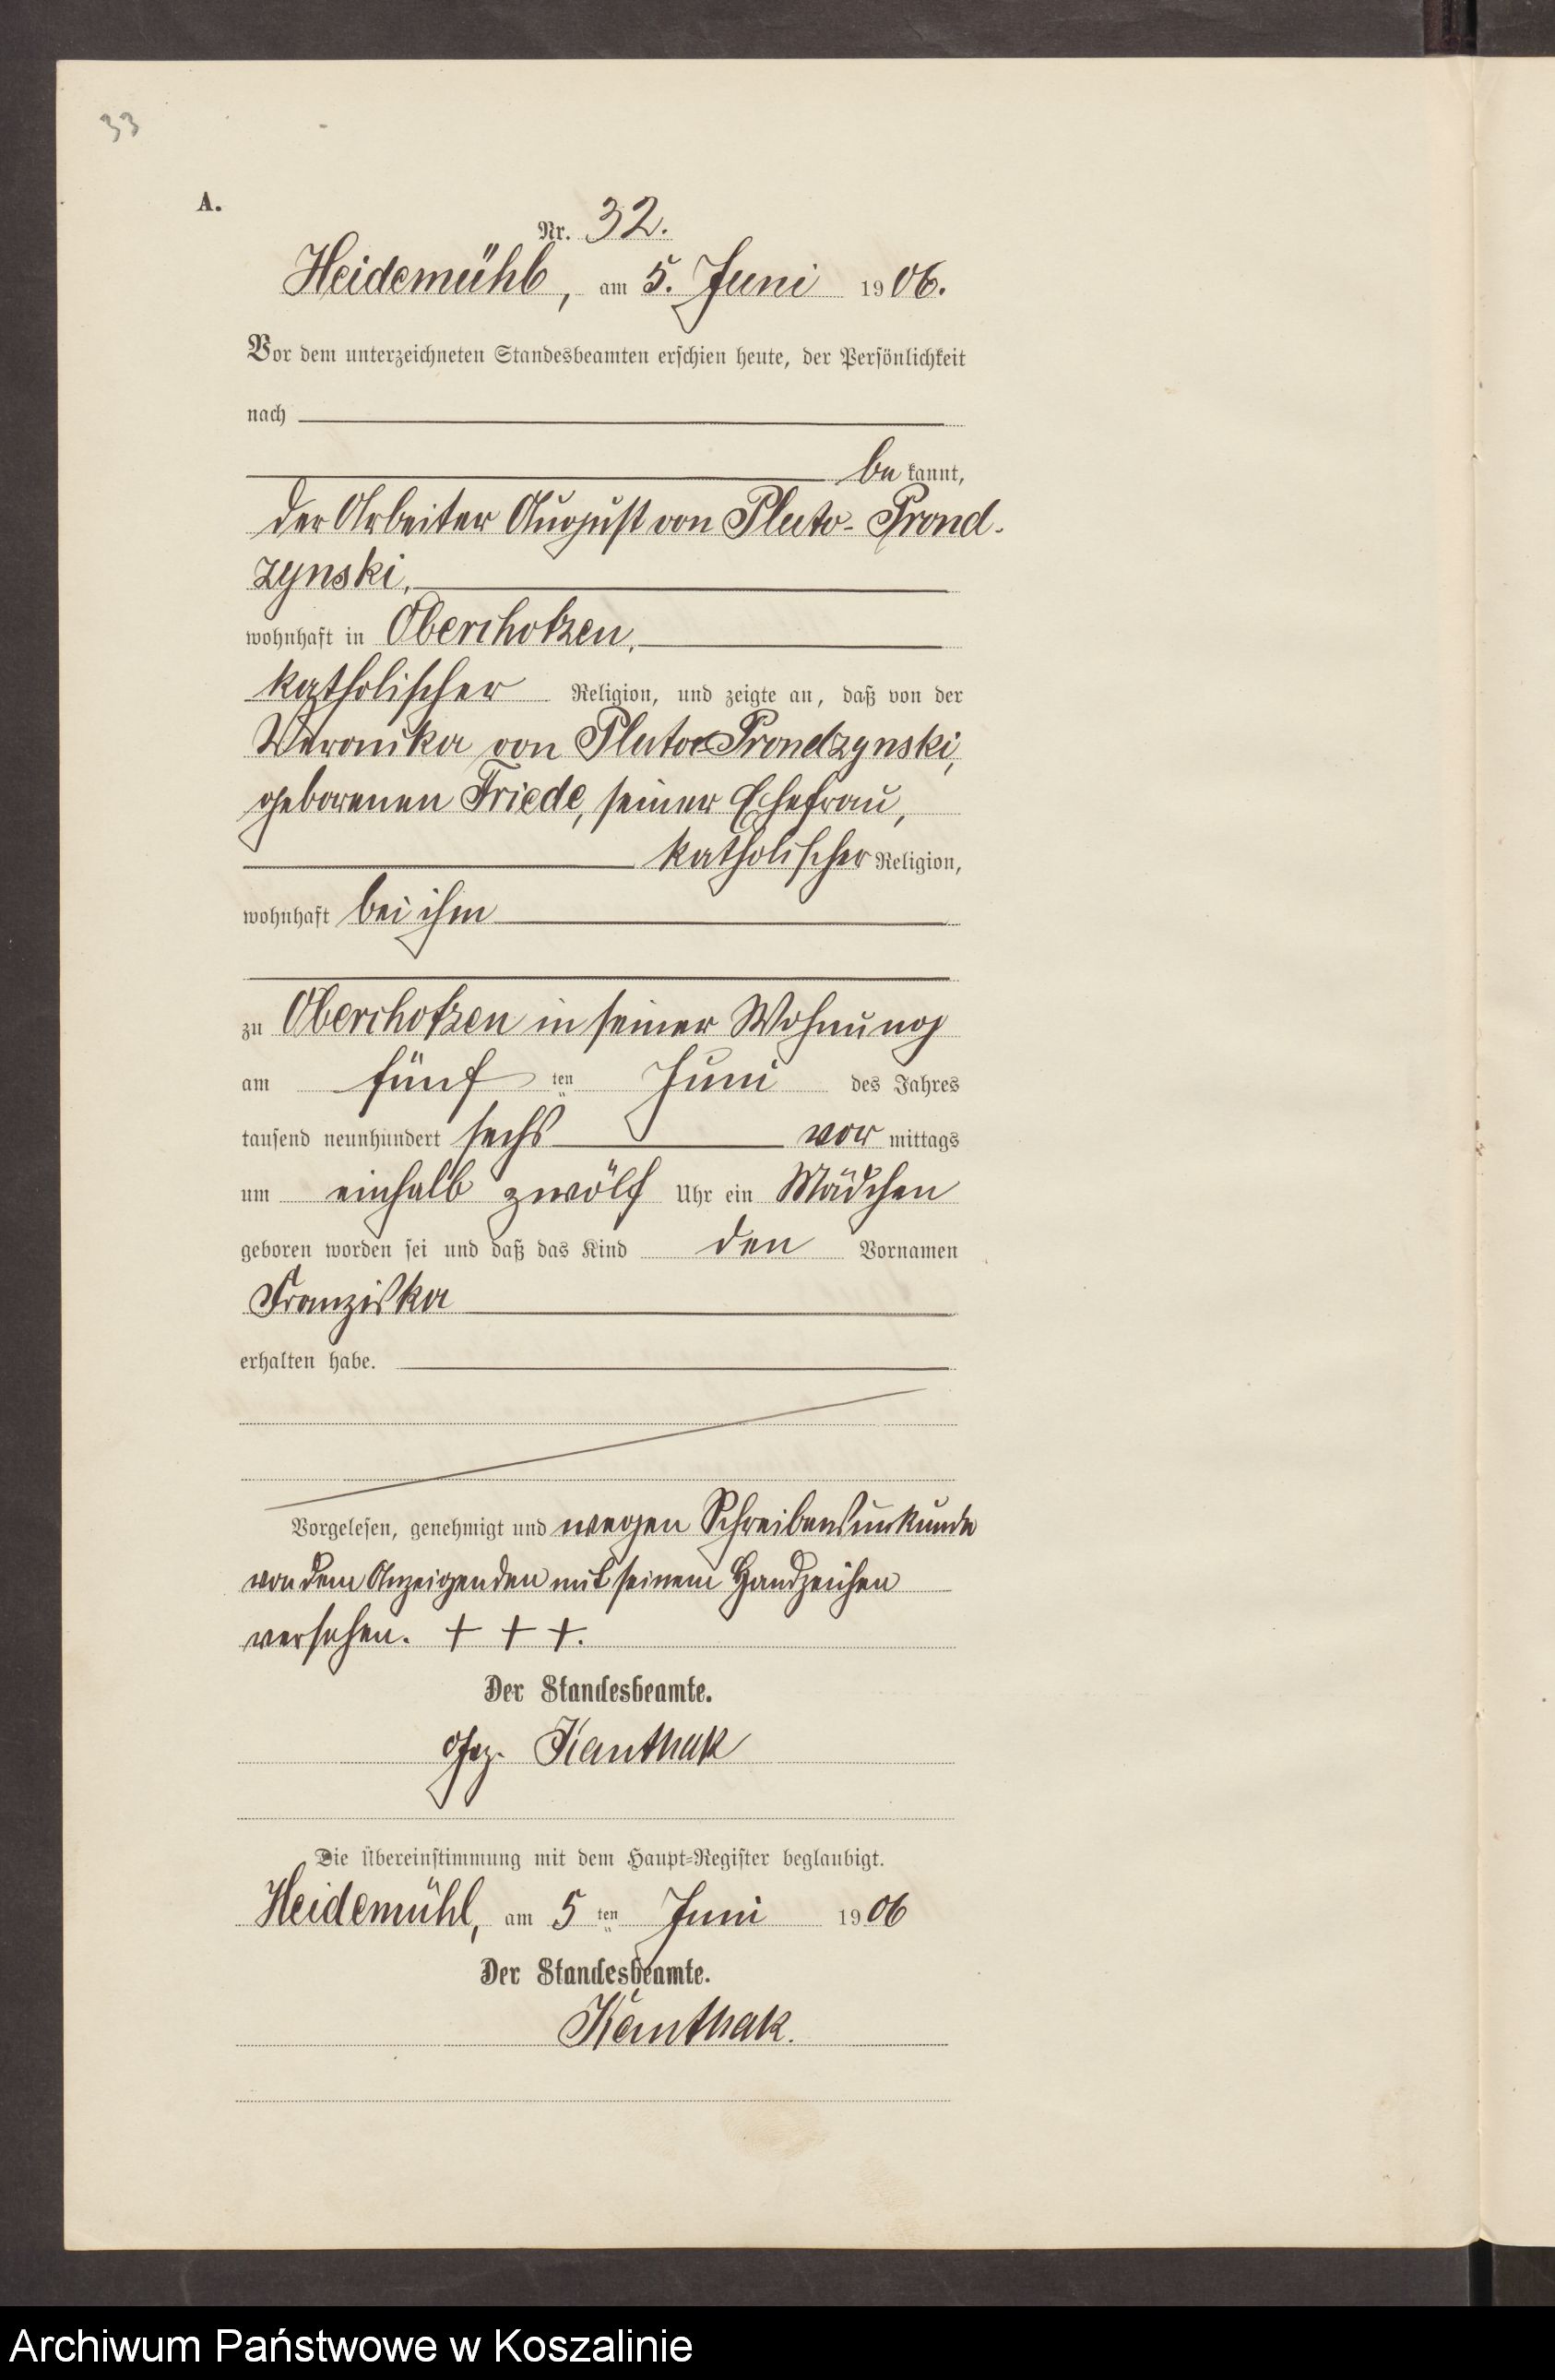 33
A.
Nr. 32.
Heidemühl, am 5. Juni 1906.
Vor dem unterzeichneten Standesbeamten erschien heute, der Persönlichkeit
nach
be kannt,
der Arbeiter August von Pluto-Prond-
zynski,
wohnhaft in Oberchotzen,
katholischer Religion, und zeigte an, daß von der
Veronika von Pluto Prondzynski,
geborenen Friede, seiner Ehefrau,
katholischer Religion,
wohnhaft bei ihm
zu Oberchotzen in seiner Wohnung
am fünf ten Juni des Jahres
tausend neunhundert sechs vor mittags
um einhalb zwölf Uhr ein Mädchen
geboren worden sei und daß das Kind den Vornamen
Franziska
erhalten habe.
Vorgelesen, genehmigt und wegen Schreibensunkunde
von dem Anzeigenden mit seinem Handzeichen
versehen. + + +.
Der Standesbeamte.
gez. Kanthak
Die Übereinstimmung mit dem Haupt-Register beglaubigt.
Heidemühl, am 5 ten Juni 1906
Der Standesbeamte.
Kanthak.
Archiwum Państwowe w Koszalinie